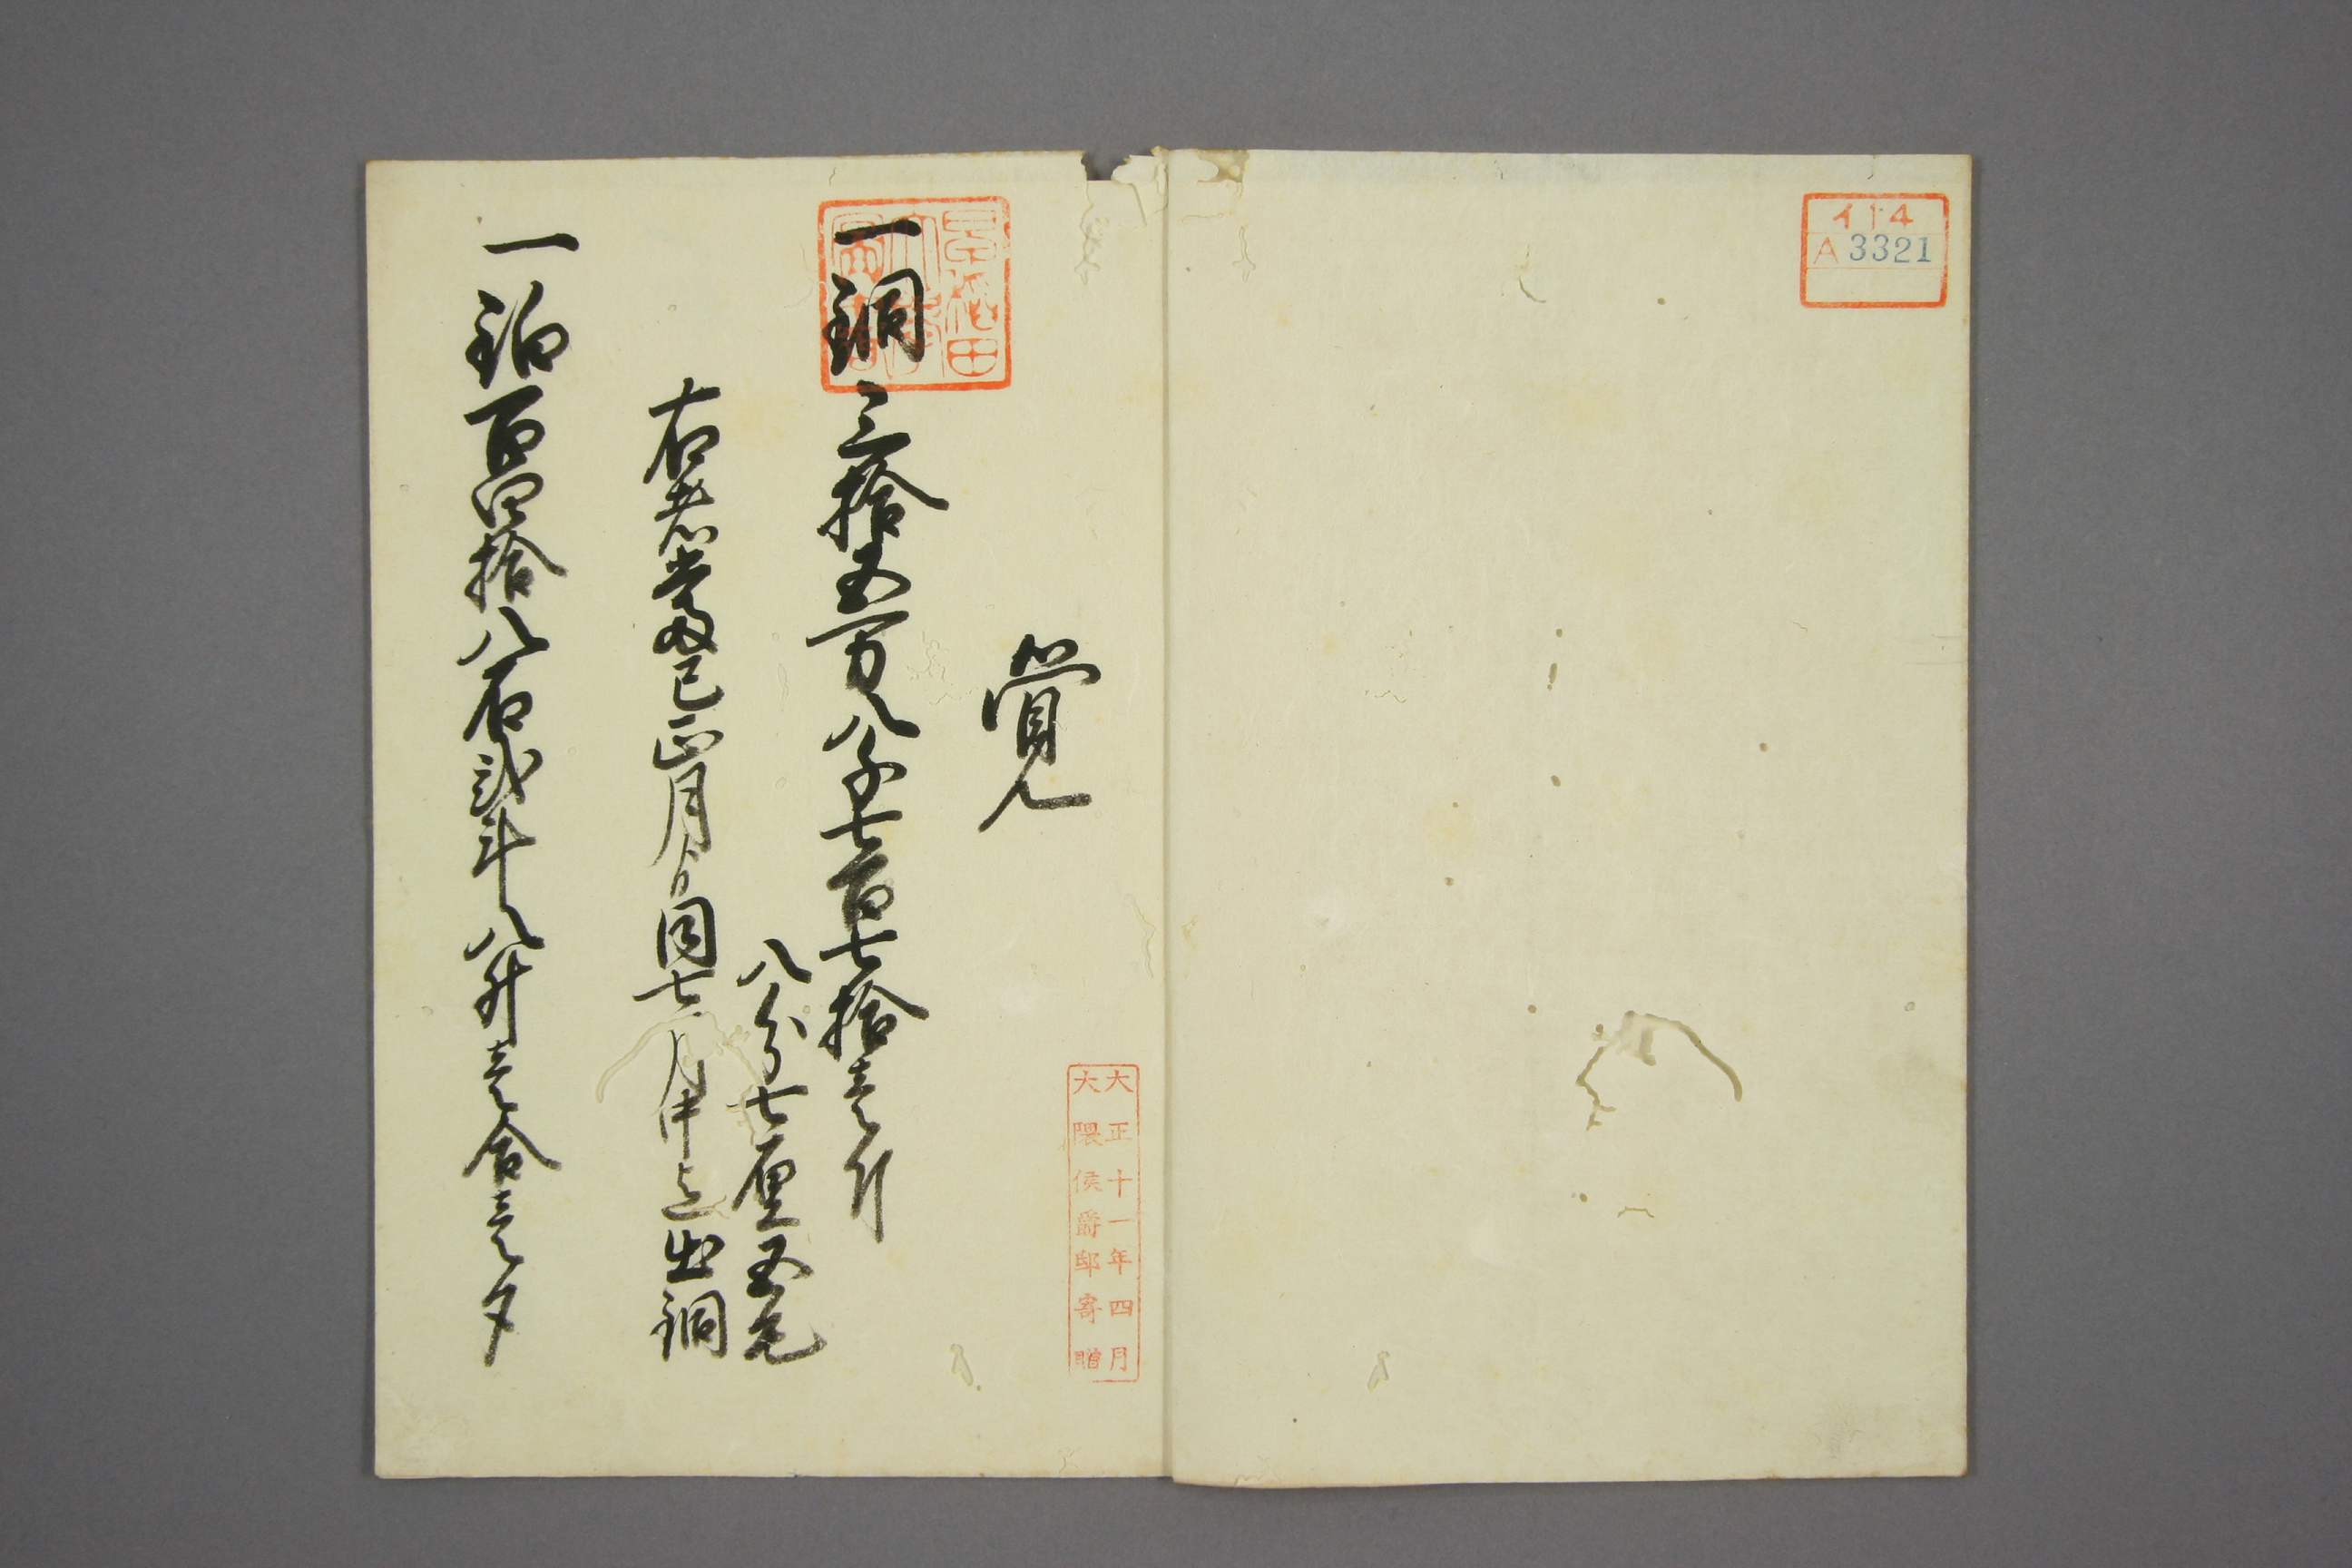 イ14
A 3321
大正十一年四月
大隈侯爵邸寄贈
早稲田
大学
図書
覚
一銅三拾五万八千七百七拾壱斤
八分七厘五毛
右者当巳正月ゟ同七月中迄出銅
一鉑百四拾八石弐斗八升壱合壱夕